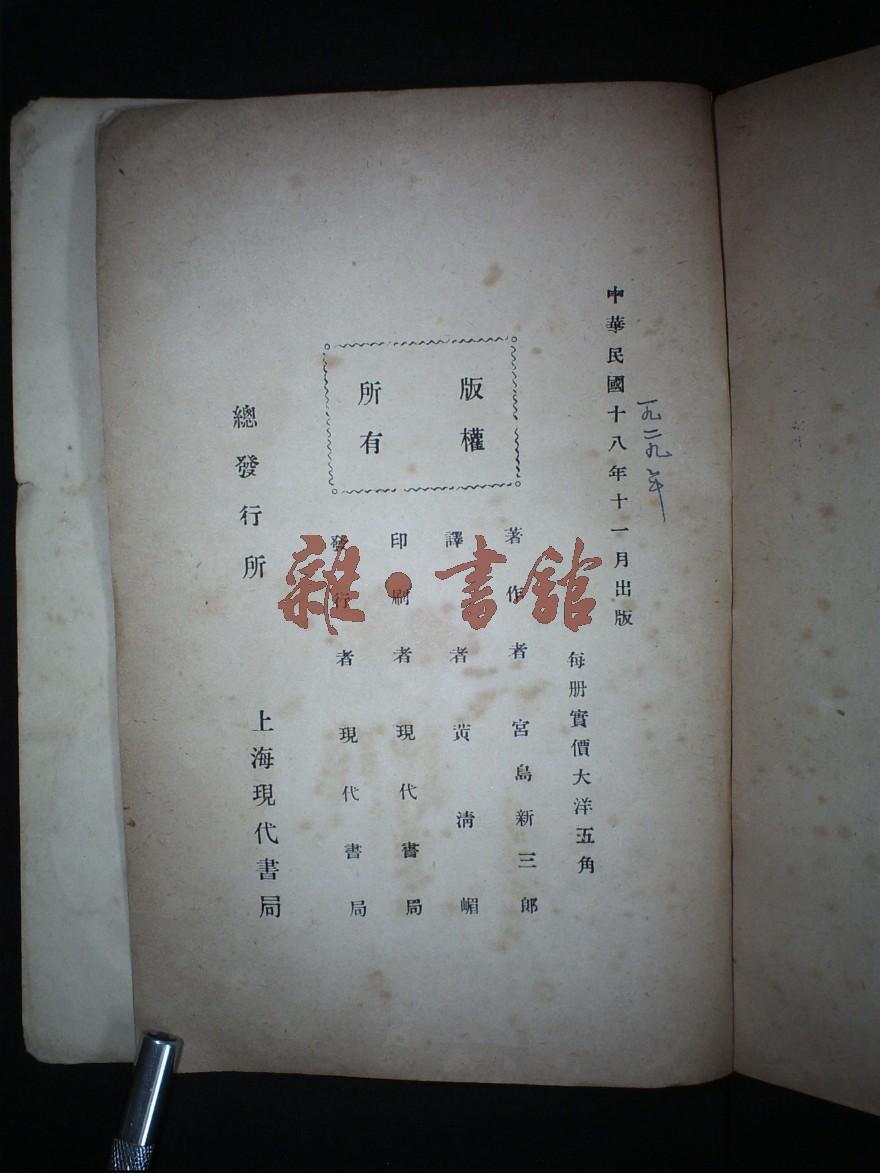 中華民國十八年十一月出版
一九二九年
每册實價大洋五角
著作者宮島新三郎
譯者黃清嵋
印刷者現代書局
發行者現代書局
版權
所有
總發行所上海現代書局
雜·書館